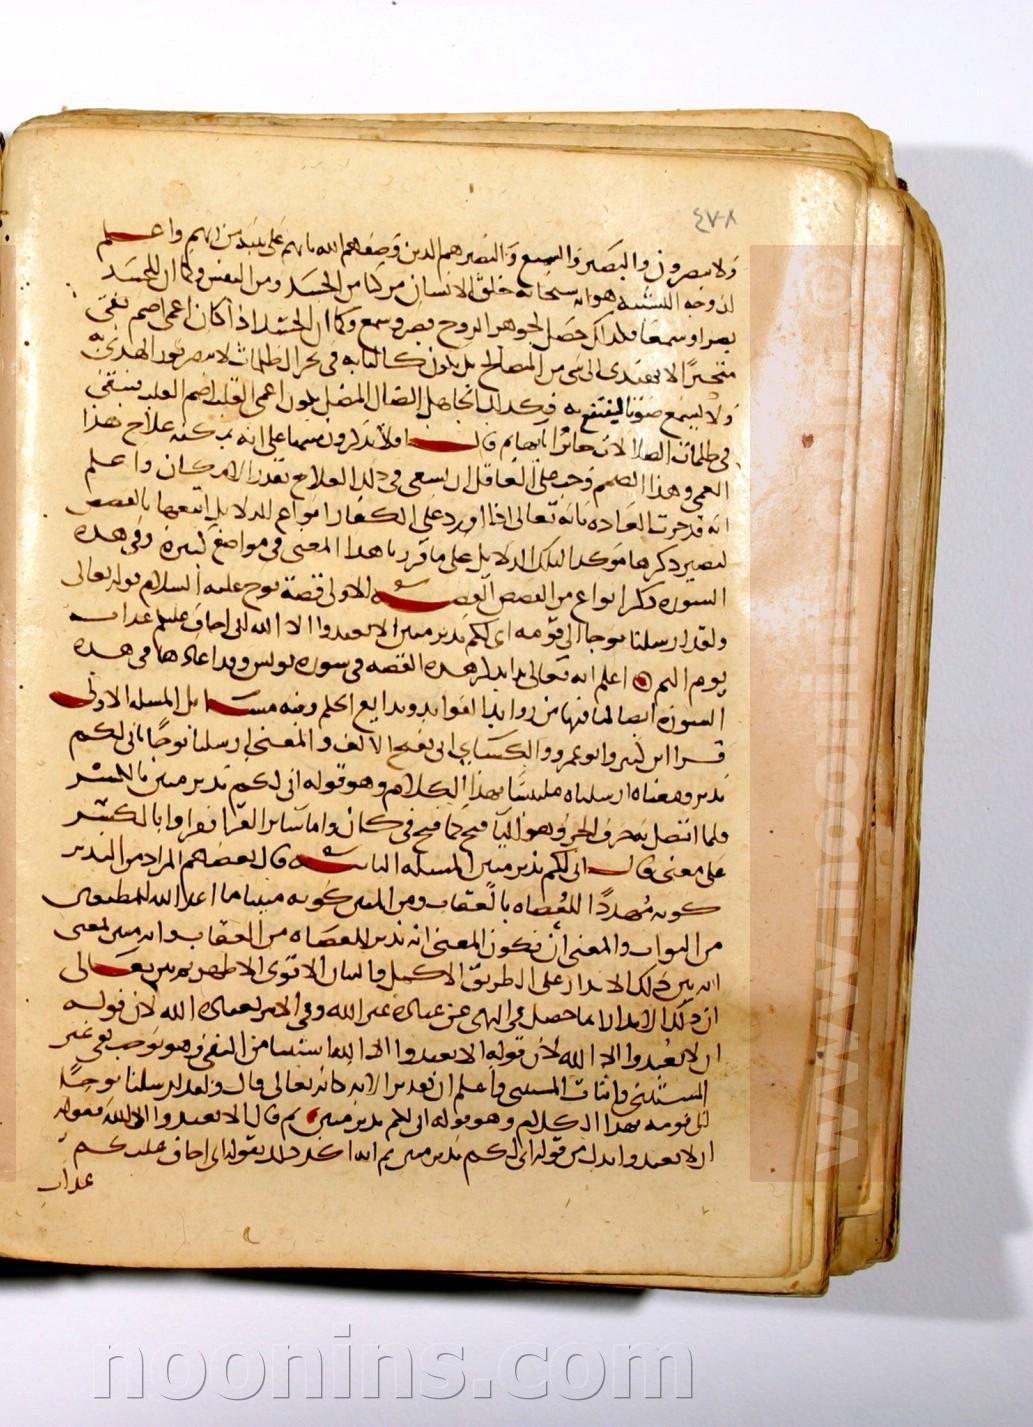 ٤٧٨
ولا يبصرون والبصير والسميع والبصير هم الذين وصفهم الله بانهم على بينة من ربهم واعلم
ان وجه التشبيه هو انه سبحانه خلق الانسان مركبا من الجسد ومن النفس وكما ان للجسد
بصرا وسمعا فكذلك حصل لجوهر الروح بصر وسمع وكما ان الجسد اذا كان اعمى اصم بقى
متحيرا لا يهتدى الى شى من المصالح بل يكون كالتايه فى بحر الظلمات لا يبصر نورا يهتدى به
ولا يسمع صوتا لينتفع به فكذلك الجاهل الضال المضل يكون اعمى القلب اصم القلب فيبقى
فى ظلمات الضلالات حائرا تايها ثم قال افلا تذكرون منبها على انه يمكنه علاج هذا
العمى وهذا الصمم وجب على العاقل ان يسعى فى ذلك العلاج بقدر الامكان واعلم
انه قد جرت العادة بانه تعالى اذا اورد على الكفار انواع الدلايل اتبعها بالقصص
ليصير ذكرها موكدا لتلك الدلايل على ما قررنا هذا المعنى فى مواضع كثيرة وفى هذه
السورة ذكر انواعا من القصص القصة الاولى قصة نوح عليه السلام قوله تعالى
ولقد ارسلنا نوحا الى قومه انى لكم نذير مبين ان لا تعبدوا الا الله انى اخاف عليكم عذاب
يوم اليم اعلم انه تعالى قد بدا بذكر هذه القصة فى سورة يونس وقد اعادها فى هذه
السورة ايضا لما فيها من زوايد الفوايد وبدايع الحكم وفيه مسايل المسلة الاولى
قرا ابن كثير وابو عمرو والكسائي انى بفتح الالف والمعنى ارسلنا نوحا بانى لكم
نذير ومعناه ارسلناه ملتبسا بهذا الكلام وهو قوله انى لكم نذير مبين بالكسر
فلما اتصل به حرف الجر وهو البآ فتح كما فتح فى كان واما سائر القرا فقراوا بالكسر
على معنى قال انى لكم نذير مبين المسلة الثانية قال بعضهم المراد من النذير
كونه مهددا للعصاه بالعقاب ومن المبين كونه مبينا ما اعد الله للمطيعين
من الثواب والمعنى ان يكون المعنى انه نذير للعصاه من العقاب وانه مبين بمعنى
انه بين ذلك الانذار على الطريق الاكمل والبيان الاقوى الاظهر ثم بين تعالى
ان ذلك الانذار انما حصل فى النهى عن عبادة غير الله وفى الامر بعبادة الله لان قوله
ان لا تعبدوا الا الله لان قوله الا تعبدوا الا الله استثنا من النفى وهو يوجب نفى غير
المستثنى واثبات المستثنى واعلم ان تقدير الاية كانه تعالى قال ولقد ارسلنا نوحا
الى قومه بهذا الكلام وهو قوله انى لكم نذير مبين ثم قال الا تعبدوا الا الله فقوله
ان لا تعبدوا بدل من قوله انى لكم نذير مبين ثم انه اكد ذلك بقوله انى اخاف عليكم
عذاب
www.noonins.com
noonins.com